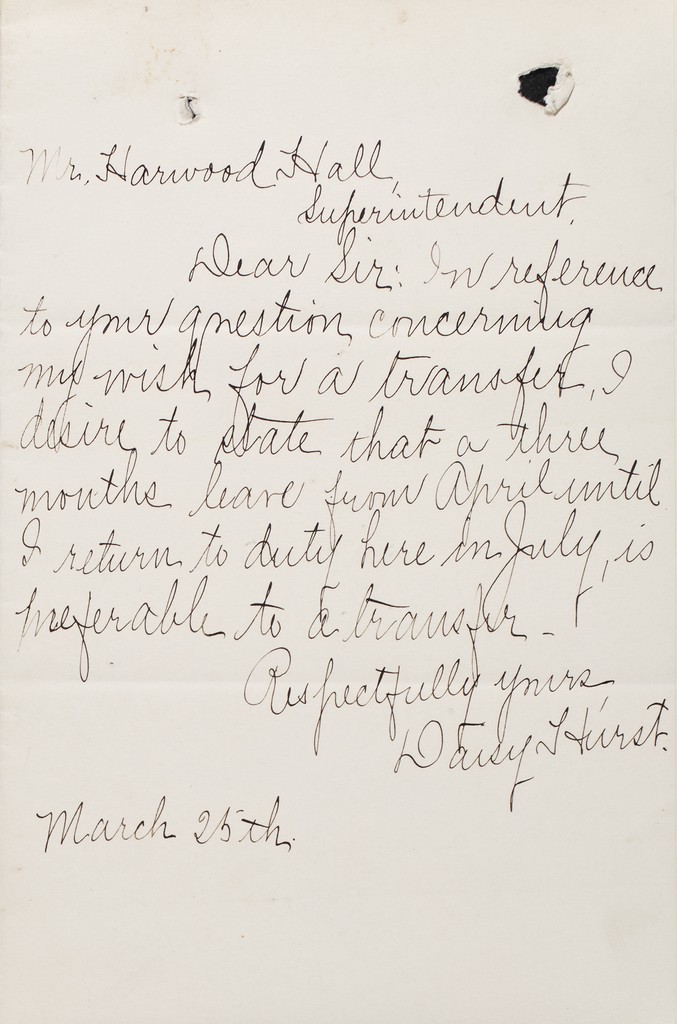 Mr. Harwood Hall,
Superintendent.
Dear Sir: In reference
to your question concerning
my wish for a transfer, I
desire to state that a three
months leave from April until
I return to duty here in July, is
preferable to a transfer.
Respectfully yours,
Daisy Hirst.
March 25th.